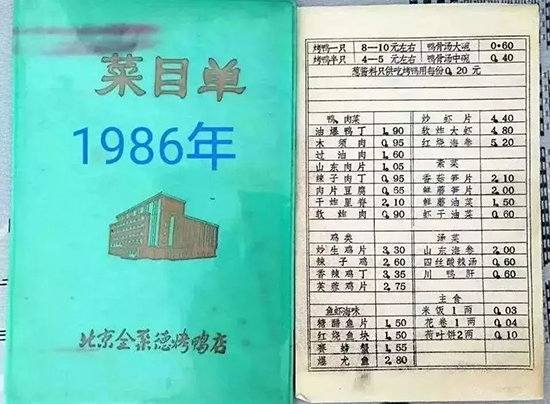 菜目单
1986年
北京全聚德烤鸭店
烤鸭一只 8—10元左右 鸭骨汤大碗 0.60
烤鸭半只 4—5元左右 鸭骨汤中碗 0.40
葱酱料只供吃烤鸭用每份0.20元
鸭、肉菜
油爆鸭丁 1.90
木须肉 0.95
过油肉 1.60
山东肉片 1.05
辣子肉丁 0.95
肉片豆腐 0.65
干炸里脊 2.10
软炸肉 0.90
鸡类
炒生鸡片 3.30
辣子鸡 2.60
香辣鸡丁 3.35
芙蓉鸡片 2.75
鱼虾海味
糖醋鱼片 1.50
红烧鱼块 1.50
赛螃蟹 1.55
爆尤鱼 2.80
炒虾片 4.40
软炸大虾 4.80
红烧海参 5.20
素菜
香菇笋片 2.10
鲜蘑笋片 2.00
鲜蘑油菜 1.50
虾干油菜 0.60
汤菜
山东海参 2.00
四丝酸辣汤 0.60
川鸭肝 0.60
主食
米饭1两 0.03
花卷1两 0.04
荷叶饼2两 0.10